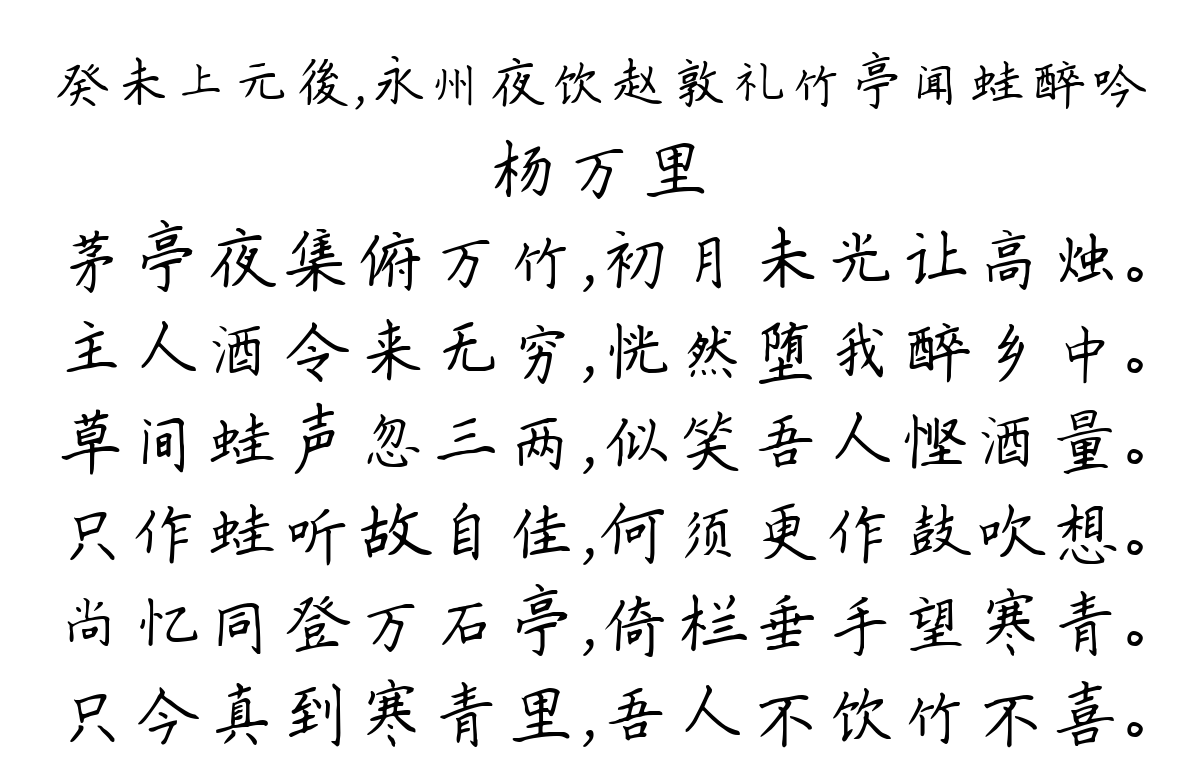 癸未上元後,永州夜饮赵敦礼竹亭闻蛙醉吟
杨万里
茅亭夜集俯万竹,初月未光让高烛。
主人酒令来无穷,恍然堕我醉乡中。
草间蛙声忽三两,似笑吾人悭酒量。
只作蛙听故自佳,何须更作鼓吹想。
尚忆同登万石亭,倚栏垂手望寒青。
只今真到寒青里,吾人不饮竹不喜。